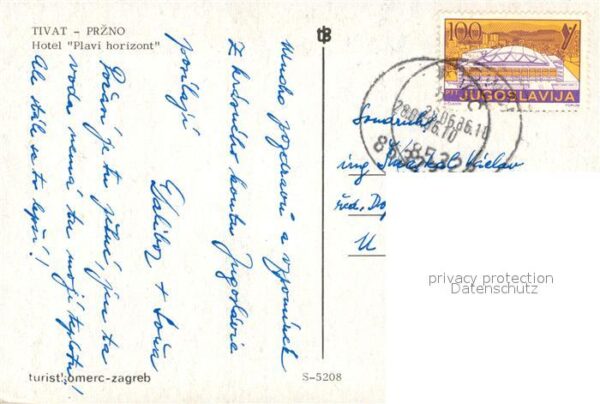 TIVAT – PRŽNO
Hotel "Plavi horizont"
Mnoho pozdravů a vzpomínek
z krásného koutu Jugoslávie
posílají
Dalibor + Soňa
Počasí je tu pěkné, jen ta
voda nemá tu svoji teplotu!
Ale stále se to lepší!
turist komerc-zagreb
S-5208
100
PTT JUGOSLAVIJA
28.06.86.10
Soudruh
ing. Václav
řed.
privacy protection
Datenschutz